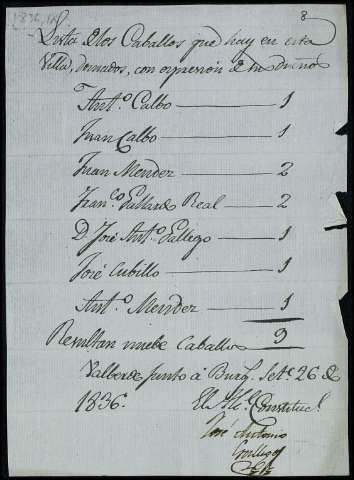 1836
8
Lista de los Caballos que hay en esta
Villa, domados, con expresion de sus dueños
Ant.º Calbo — 1
Juan Calbo — 1
Juan Mendez — 2
Fran.co Gallardo Real — 2
D. José Ant.º Gallego — 1
José Cubillo — 1
Ant.º Mendez — 1
Resultan nuebe Caballos 9
Valberde junto á Burg. Set.e 26 de
1836.
El Al.e Constituc.l
José Antonio
Gallego